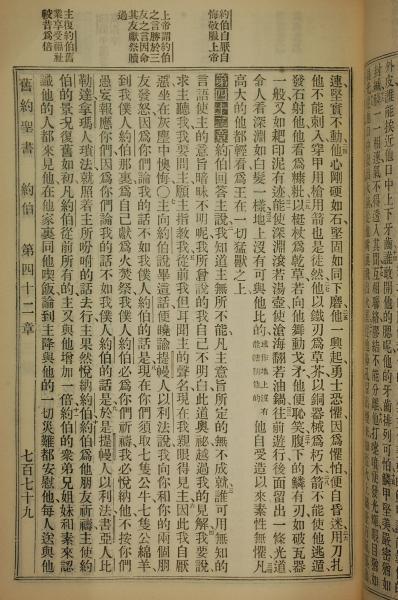 外皮誰能挨近他口中上下牙齒誰敢開他的腮呢他的牙齒排列可怕鱗甲堅美嚴密猶如
連堅實不動他心剛硬如石堅固如同下磨他一興起勇士恐懼因爲懼怕便自昏迷用刀扎
他不能刺入穿甲用槍用箭也是徒然他以鐵刃爲草芥以銅器械爲朽木箭不能使他逃遁
發石射他他看爲糠粃以梃杖爲乾草若向他舞動戈矛他便恥笑腹下的鱗有刃如破瓦器
一般又如耙印泥有迹能使深淵滾若湯壺使滄海翻若油鍋往前遊行後面留出一條光道
令人看深淵如白髮一樣地上沒有可與他比的他自受造以來素性無懼凡
高大的他都輕看爲王在一切猛獸之上
約伯自厭自悔敬服上帝
第四十二章約伯回答主說我知道主無所不能凡主意旨所定的無不成就誰可用無知的
言語使主的意旨暗昧不明呢我所曾說的我自己不明白此道奧祕越過我的見解我要說
求主聽我我要問主願主指教我從前我但耳聞主的聲名現在我親眼得見主因此我自厭
上帝謂約伯之言勝於三友之言因命其友獻祭贖過
惡坐在灰塵中懊悔○主向約伯說畢這話便曉諭提幔人以利法說我向你和你的兩個朋
友發怒因爲你們論我說的話不如我僕人約伯的話是現在你們須取七隻公牛七隻公綿羊
到我僕人約伯那裏爲自己獻爲火焚祭我僕人約伯必爲你們祈禱我必悅納他不按你們
愚妄報應你們因爲你們論我說的話不如我僕人約伯的話是於是提幔人以利法書亞人比
主復約伯舊業享受福祉較昔爲倍
勒達拿瑪人瑣法就照着主所吩咐的話去行主果然悅納約伯約伯爲他朋友祈禱主使約
伯的景況復舊如初凡約伯從前所有的主又與他增加一倍約伯的衆弟兄姐妹和素來認
識他的人都來見他在他家裏同他喫飯論到主降與他的一切災難都安慰他每人送與他
舊約聖書 約伯 第四十二章 七百七十九